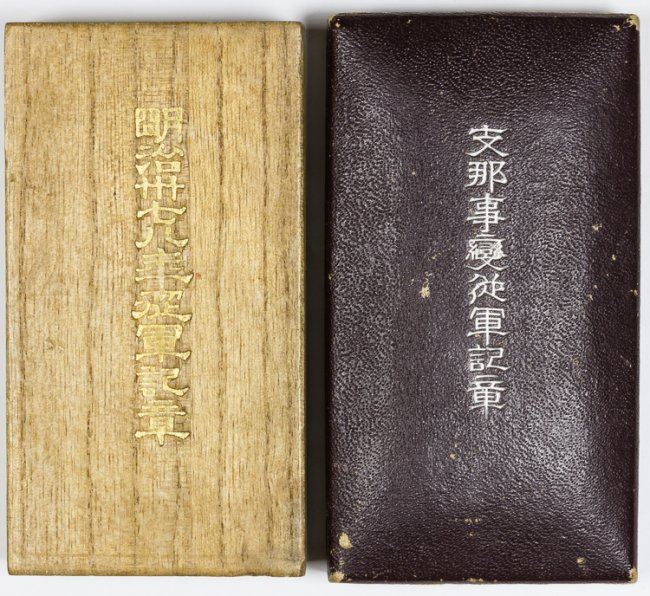 明治卅七八年從軍記章
支那事變從軍記章